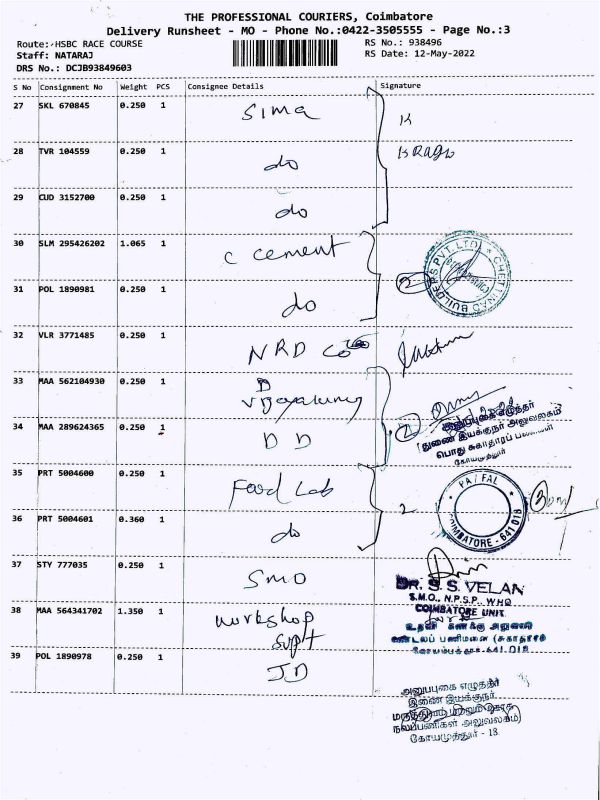 THE PROFESSIONAL COURIERS, Coimbatore
Delivery Runsheet - MO - Phone No.:0422-3505555 - Page No.:3
Route: HSBC RACE COURSE RS No.: 938496
Staff: NATARAJ RS Date: 12-May-2022
DRS No.: DCJB93849603
S No Consignment No Weight PCS Consignee Details Signature
27 SKL 670845 0.250 1 Sima
28 TVR 104559 0.250 1 do
29 CUD 3152700 0.250 1 do
30 SLM 295426202 1.065 1 C Cement
CHETTINAD BUILDERS PVT.LTD
31 POL 1890981 0.250 1 do 2
32 VLR 3771485 0.250 1 NRD
33 MAA 562104930 0.250 1 D
அனுப்புகை எழுத்தர்
துணை இயக்குநர் அலுவலகம்
34 MAA 289624365 0.250 1 DD 2
பொது சுகாதாரப்
கோயமுத்தூர்
35 PRT 5004600 0.250 1 Food Lab 2
COIMBATORE - 641 018
36 PRT 5004601 0.360 1 do
37 STY 777035 0.250 1 SMO
DR. S. S. VELAN
S.M.O., N.P.S.P., WHO
COIMBATORE UNIT
38 MAA 564341702 1.350 1 workshop
supt
39 POL 1890978 0.250 1 JD
அனுப்புகை எழுத்தர்
இணை இயக்குநர்
மருத்துவம் மற்றும் ஊரக
நலப்பணிகள் அலுவலகம்
கோயமுத்தூர் - 18